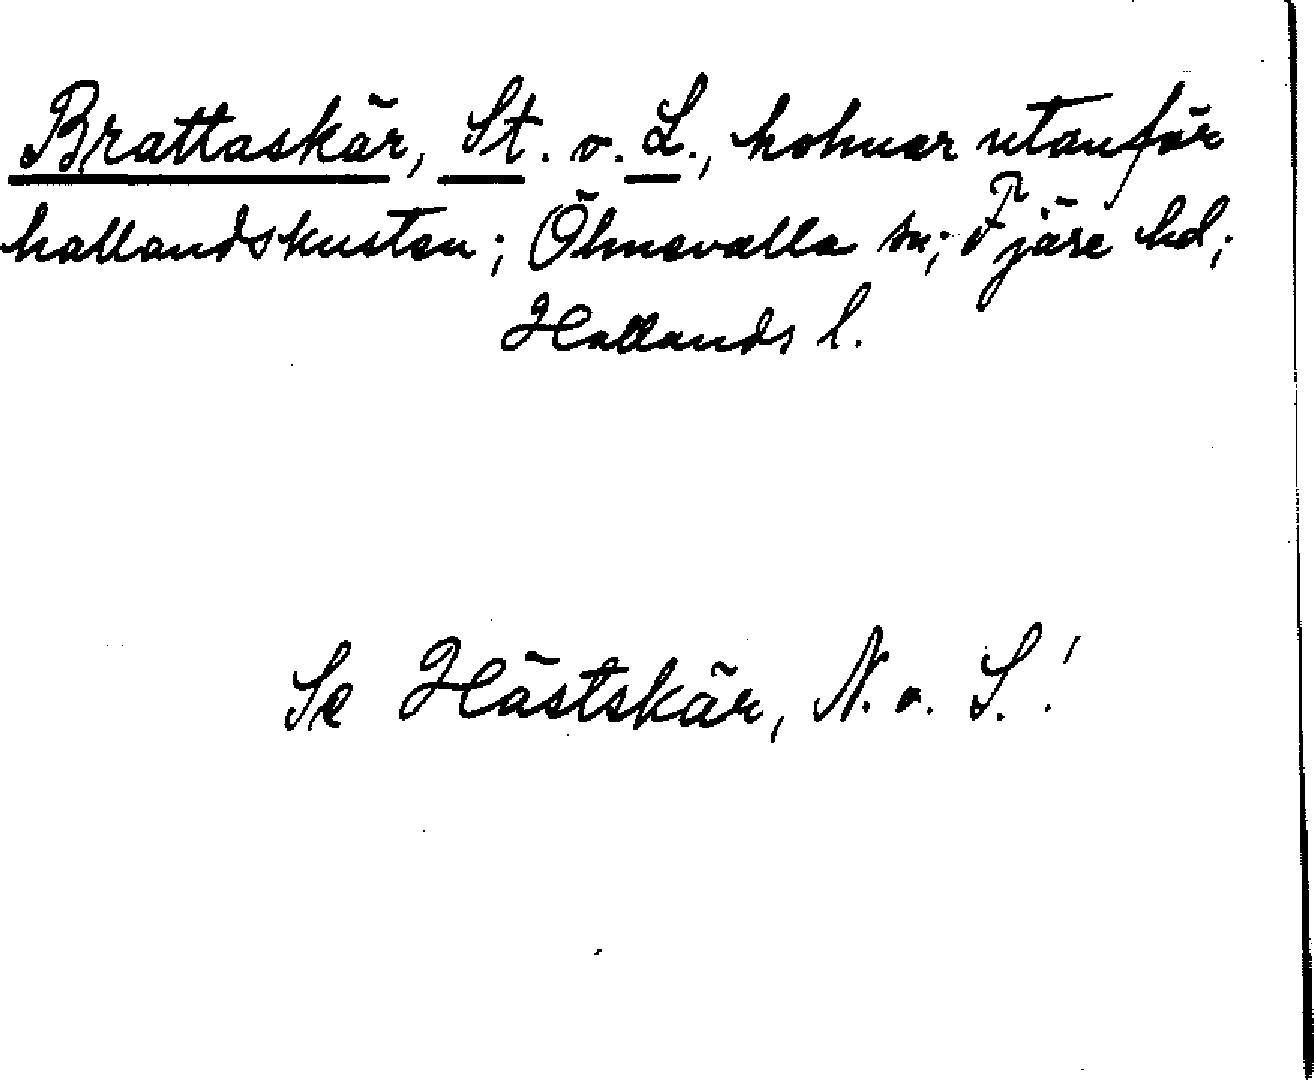 Brattaskär, St. o. L., holmar utanför
hallandskusten; Ölmevalla sn; Fjäre hd;
Hallands l.
Se Hästskär, N. o. S.!